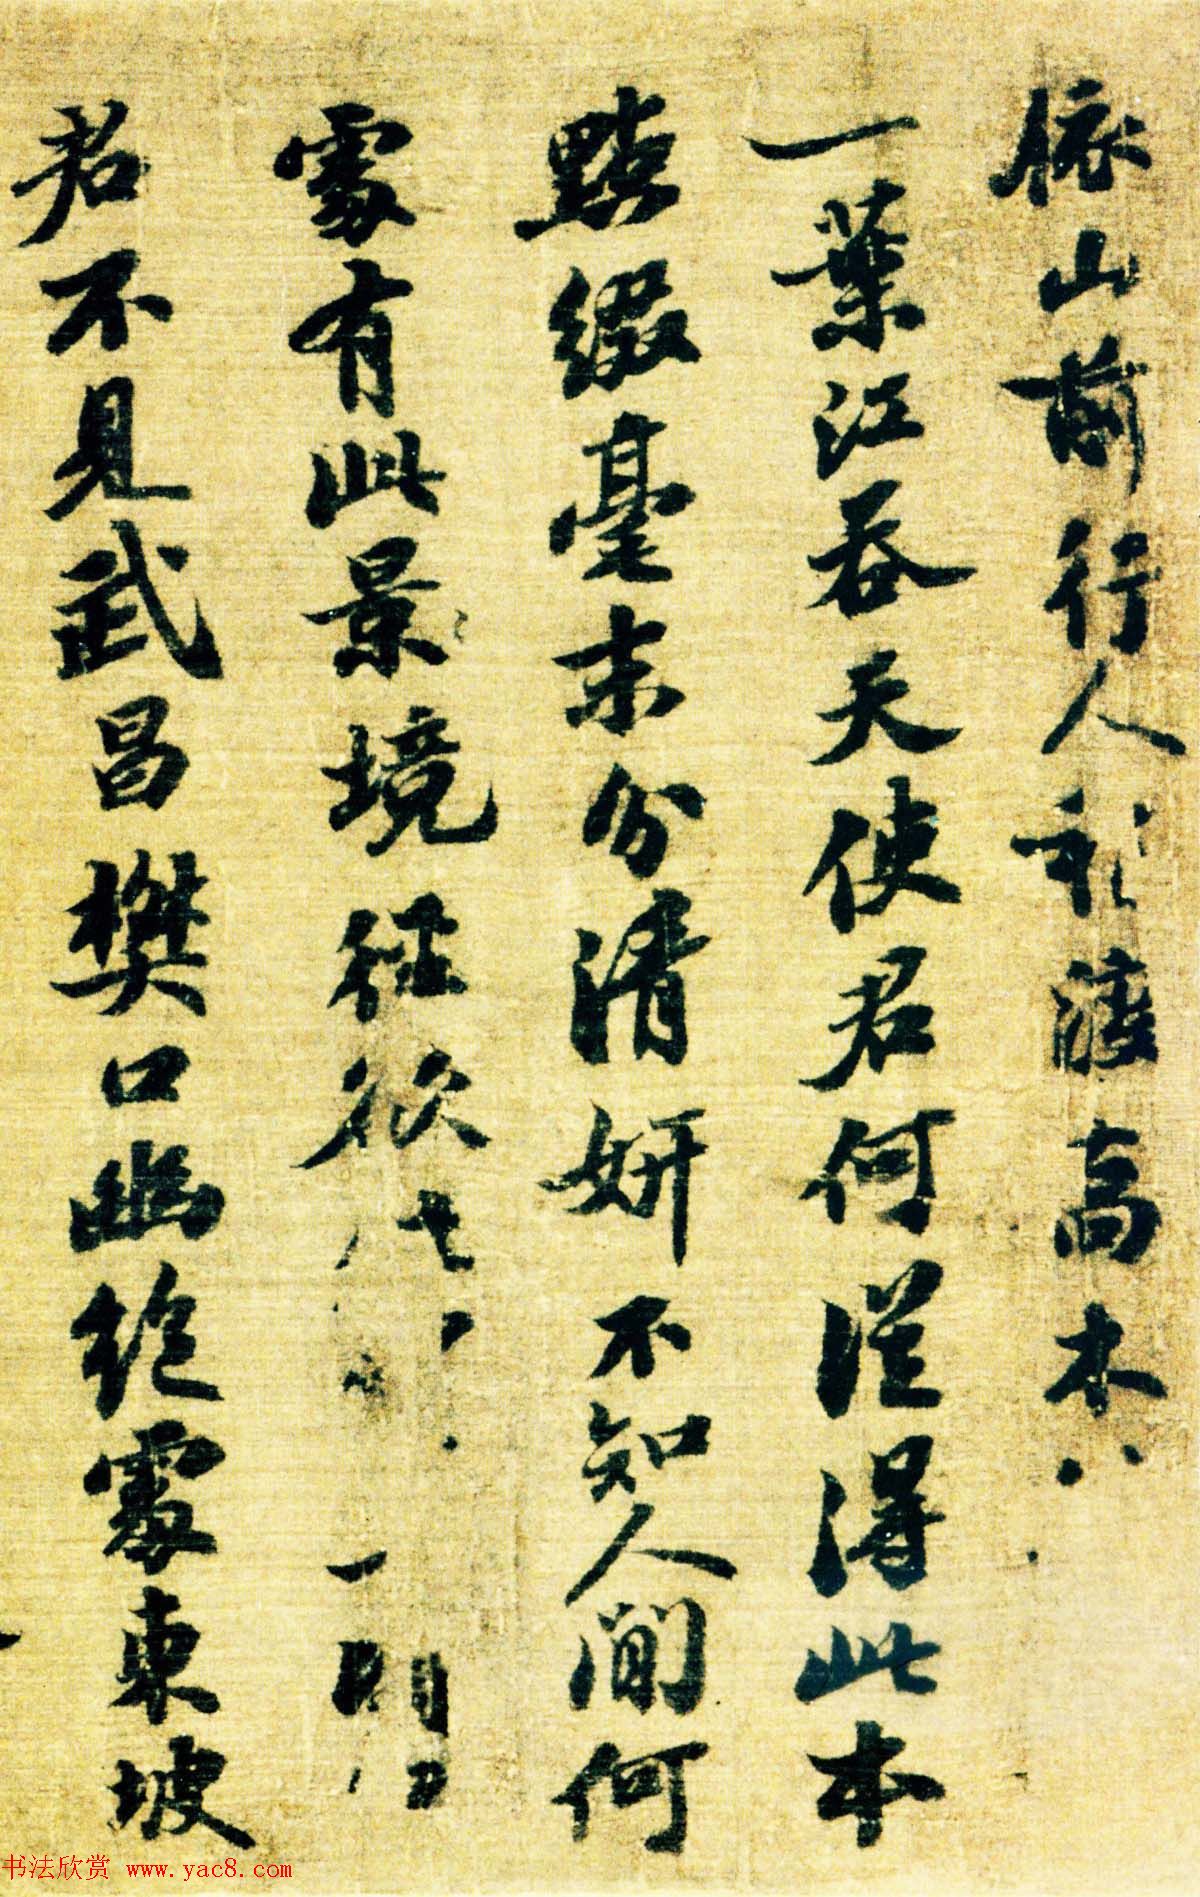 依山前行人稍渡喬木
一葉江吞天使君何從得此本
點綴毫末分清妍不知人間何
處有此景境徑欲
君不見武昌樊口幽絕處東坡
书法欣赏 www.yac8.com